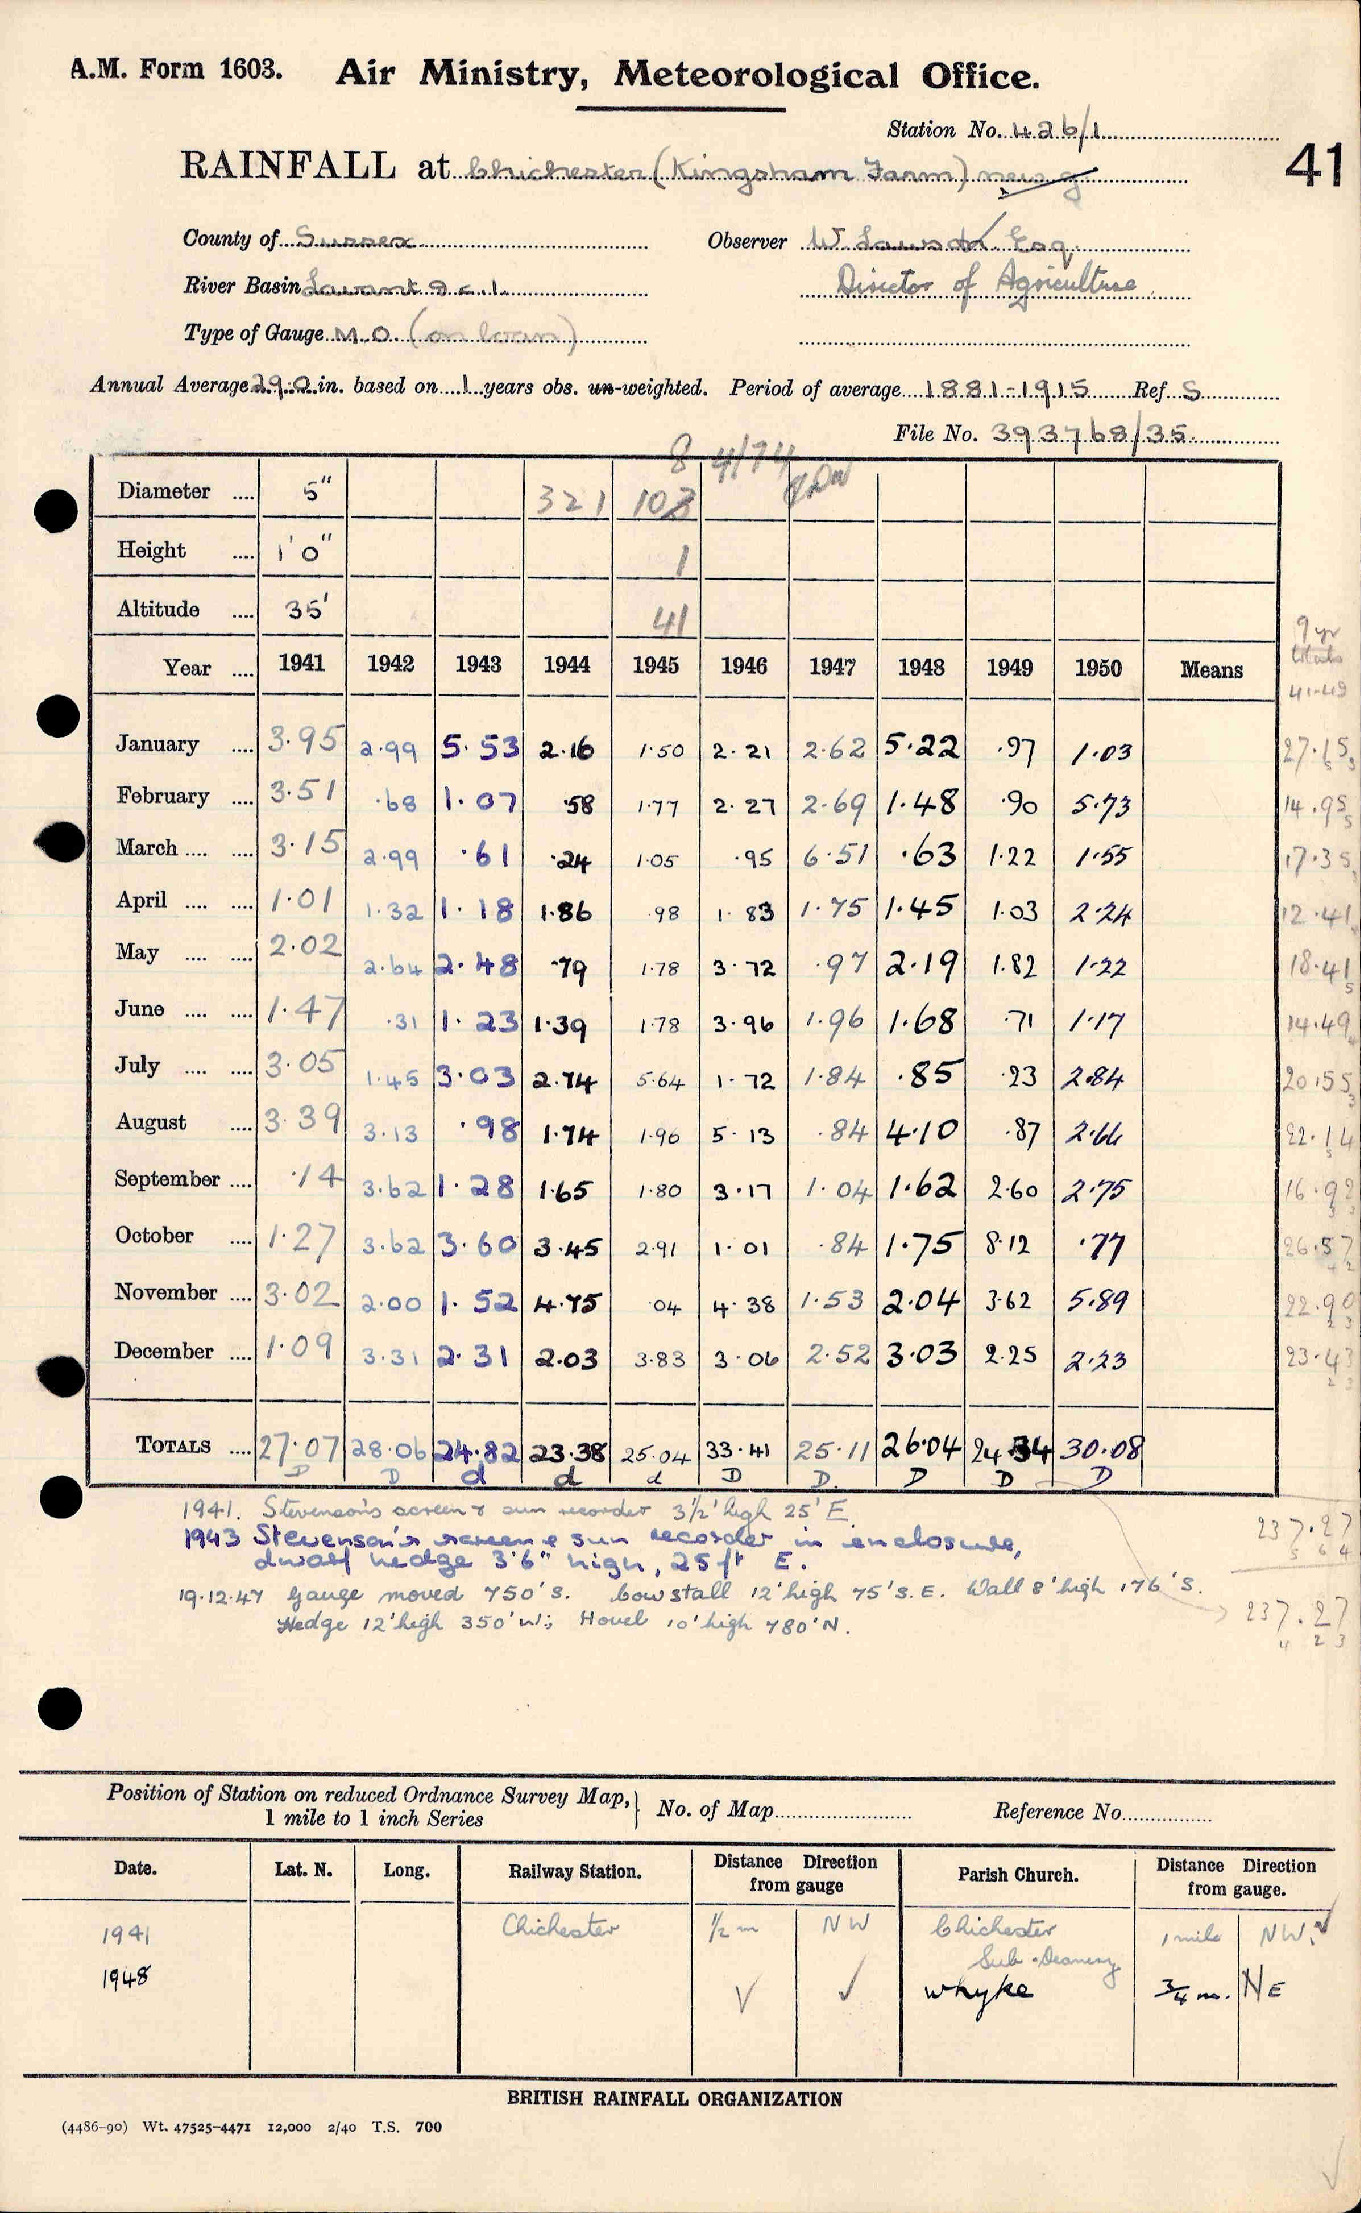 A.M. Form 1603. Air Ministry, Meteorological Office.
Station No. 426/1
41
RAINFALL at Chichester (Kingsham Farm) new g
County of Sussex Observer W. Lawson Esq.
River Basin Lavant & c.l. Director of Agriculture
Type of Gauge M.O. (on loan)
Annual Average 29.0 in. based on 1 years obs. un-weighted. Period of average 1881-1915 Ref S
File No. 393768/35
8 4/74
Diameter .... 5" 321 103
Height .... 1'0" 1
Altitude .... 35' 41
9 yr totals 41-49
Year .... 1941 1942 1943 1944 1945 1946 1947 1948 1949 1950 Means
January .... 3.95 2.99 5.53 2.16 1.50 2.21 2.62 5.22 .97 1.03 27.15
February .... 3.51 .68 1.07 .58 1.77 2.27 2.69 1.48 .90 5.73 14.95
March .... .... 3.15 2.99 .61 .24 1.05 .95 6.51 .63 1.22 1.55 17.35
April .... .... 1.01 1.32 1.18 1.86 .98 1.83 1.75 1.45 1.03 2.24 12.41
May .... .... 2.02 2.64 2.48 .79 1.78 3.72 .97 2.19 1.82 1.22 18.41
June .... .... 1.47 .31 1.23 1.39 1.78 3.96 1.96 1.68 .71 1.17 14.49
July .... .... 3.05 1.45 3.03 2.74 5.64 1.72 1.84 .85 .23 2.84 20.55
August .... 3.39 3.13 .98 1.74 1.96 5.13 .84 4.10 .87 2.66 22.14
September .... .14 3.62 1.28 1.65 1.80 3.17 1.04 1.62 2.60 2.75 16.92
October .... 1.27 3.62 3.60 3.45 2.91 1.01 .84 1.75 8.12 .77 26.57
November .... 3.02 2.00 1.52 4.75 .04 4.38 1.53 2.04 3.62 5.89 22.90
December .... 1.09 3.31 2.31 2.03 3.83 3.06 2.52 3.03 2.25 2.23 23.43
TOTALS .... 27.07 28.06 24.82 23.38 25.04 33.41 25.11 26.04 24.34 30.08
D D d d d D D. D D D
1941. Stevenson's screen & sun recorder 3½' high 25' E. 237.27
1943 Stevenson's screen & sun recorder in enclosure,
dwarf hedge 3'6" high, 25ft E.
19.12.47 Gauge moved 750'S. Cowstall 12'high 75'S.E. Wall 8'high 176'S.
Hedge 12'high 350'W; Hovel 10'high 780'N. 237.27
Position of Station on reduced Ordnance Survey Map, 1 mile to 1 inch Series No. of Map Reference No.
Date. Lat. N. Long. Railway Station. Distance Direction from gauge Parish Church. Distance Direction from gauge.
1941 Chichester ½ m NW Chichester Sub-Deanery 1 mile NW.
1948 Whyke ¾ m. NE
BRITISH RAINFALL ORGANIZATION
(4486-90) Wt. 47525-4471 12,000 2/40 T.S. 700